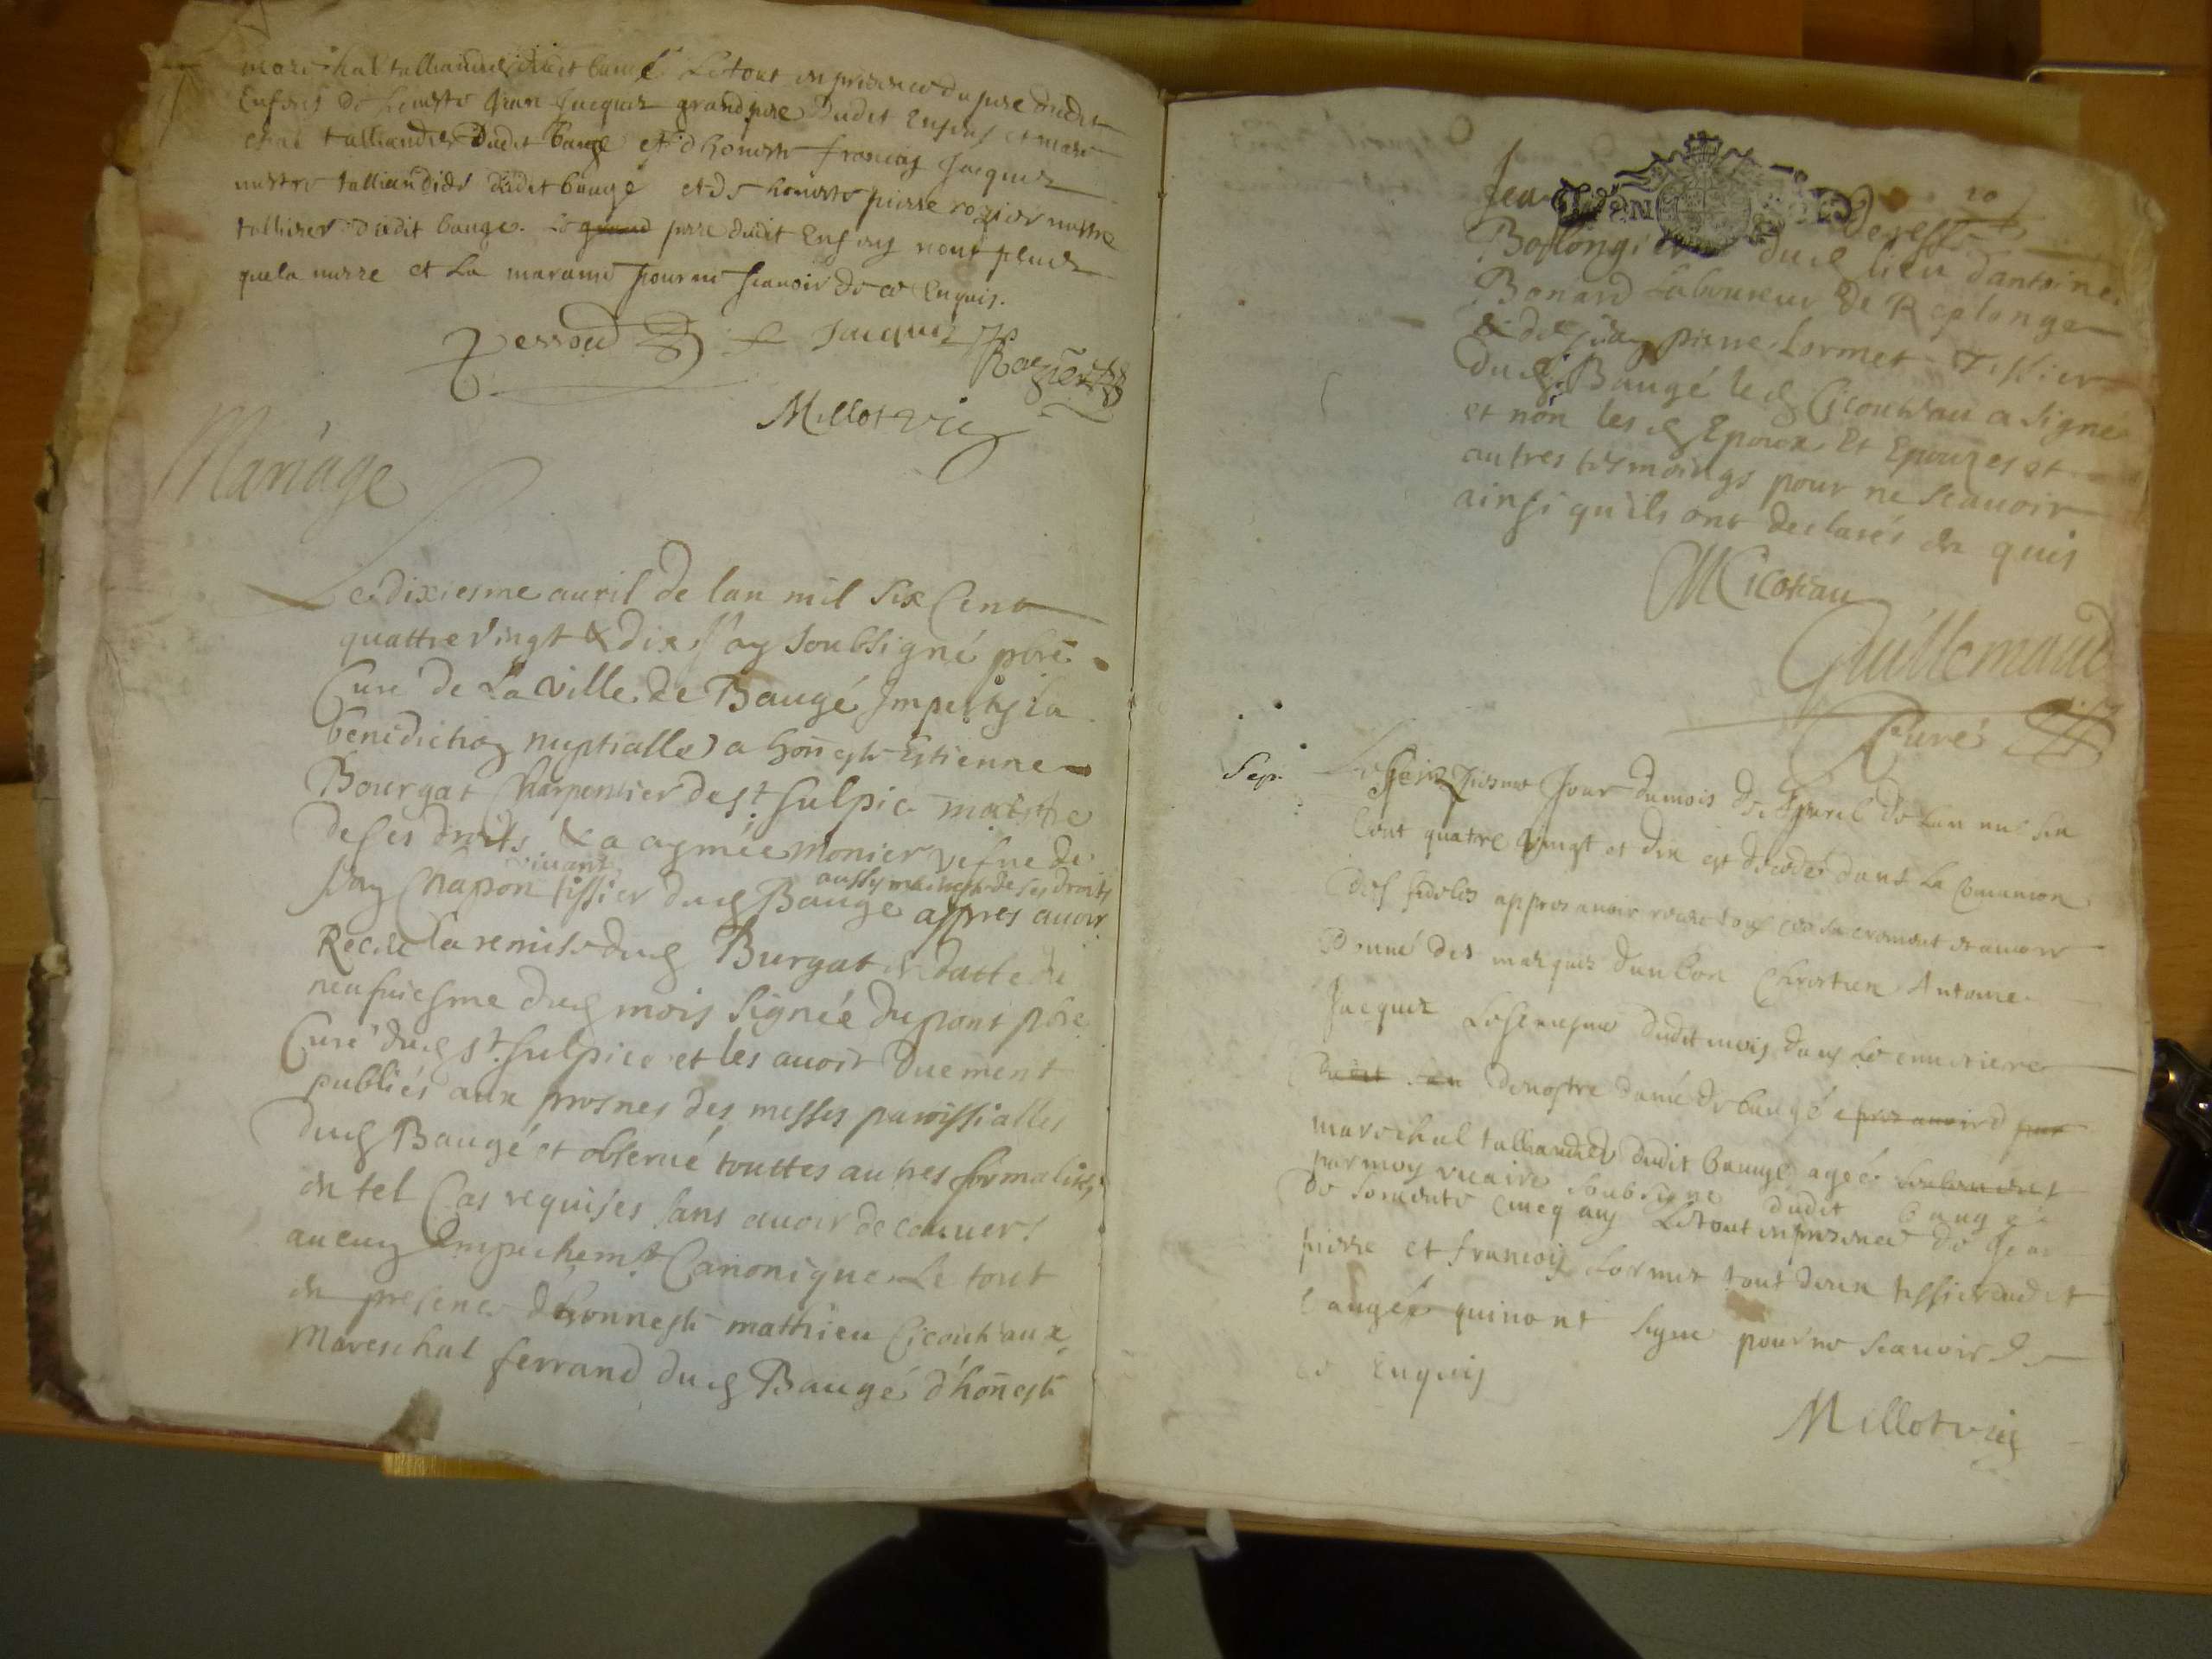 mareschal talliandier dudit baugé Le tout en presence du pere dudit
Enfans de honeste Jean Jacquez grand pere Dudit Enfans et mares
chal talliandier Dudit baugé et d'honeste francoy Jacquez
mestre talliandier dudit baugé et de honeste pierre rozier mestre
tallieur dudit baugé. Le grand pere dudit Enfans nont signez
que la mesre et La marainne pour ne scauoir de ce Enquis.
Pessoud f Jacquez
Rozier
Millot vic
Mariage
Le dixiesme auril de lan mil six Cent
quattre vingt & dix J'ay soubsigné pbre
Curé de La ville de Baugé Imparty la
benediction nuptialle a honneste Estienne
Bourgat Charpentier de st. Sulpice maistre
de ses droits & a aymée Monier vefue de
viuant aussy maitresse de ses droits
Jay Chapon tissier dud Baugé appres auoir
Receu la remise dud Burgat en datte du
neufuiesme dud mois signée dupont pbre
Curé dud st. Sulpice et les auoir Duement
publiés aux prosnes des messes paroissialles
dud Baugé et obserué touttes autres formalités
en tel Cas requises sans auoir decouuert
aucung Empechemt. Canonique Le tout
en presence d'honneste mathieu Cicouteaux
Mareschal ferrand dud Baugé d'honneste
20
Jea
Boslongier dud lieu d'antoine
Bonard Laboureur de Replonge
& de Jean pierre Lormet Tissier
dud Baugé led Cicouteau a signé
et non les d Epoux Et Epouzes et
autres tesmoings pour ne scauoir
ainsi qu'ils ont declarés en quis
M Cicoteau
Guillemaud
Curé
Sepr.
Le seinziesme Jour du mois de Apuril de Lan mil six
Cent quatre vingt et dix est decedé dans La Comunion
Des fideles appres auoir receu tous ces sacrement et auoir
Donné des marques dun bon Chrestien Antoine
Jacquez dudit mois dans Le cimetiere
dudit de nostre dame de baugé apres auoir
mareschal talliandier dudit baugé ageé
par moy vicaire soubsigne dudit baugé
de soixante cincq ans Le tout en presence de Jean
pierre et francois Lormet tous deux tissier dudit
baugé qui nont signe pour ne scauoir de
ce Enquis
Millot vic